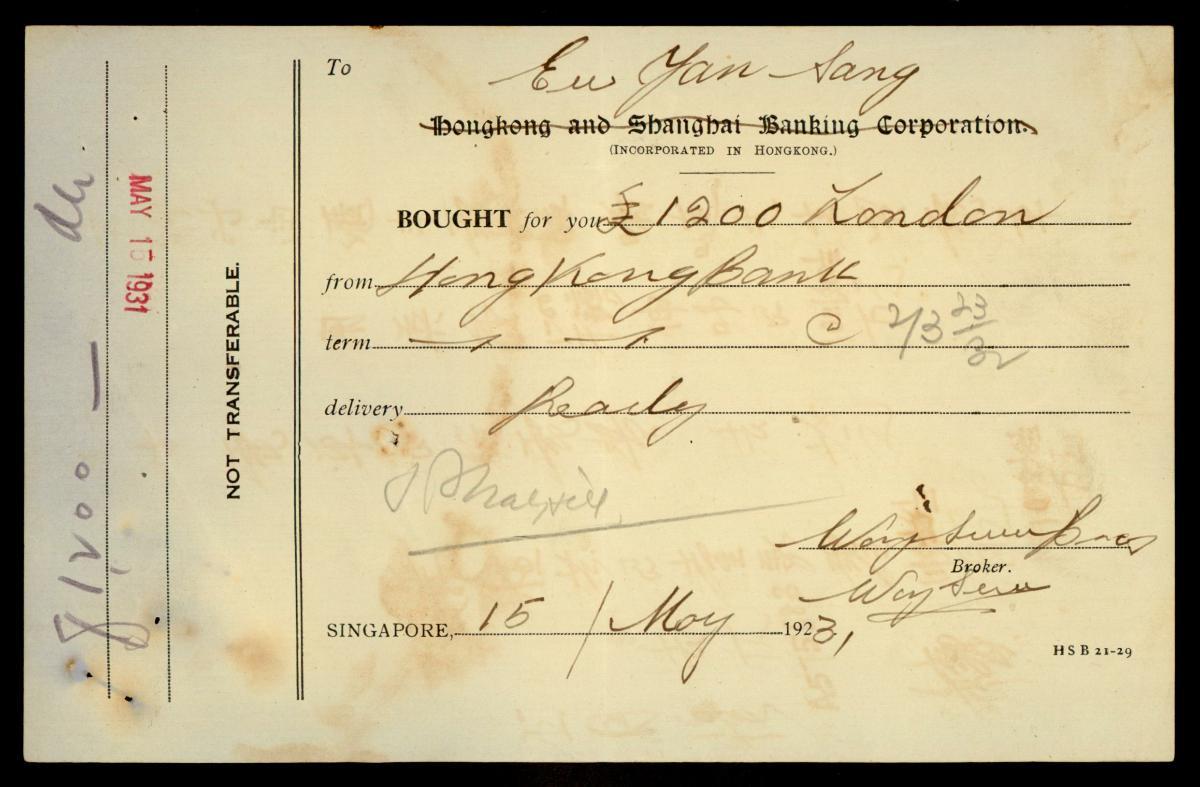 To Eu Yan Sang
Hongkong and Shanghai Banking Corporation.
(INCORPORATED IN HONGKONG.)
BOUGHT for you £1200 London
from Hong Kong Bank
term " " @ 2/3 23/32
delivery Ready
Broker.
SINGAPORE, 15 / May 1931
H S B 21-29
NOT TRANSFERABLE.
MAY 15 1931
£1200 —